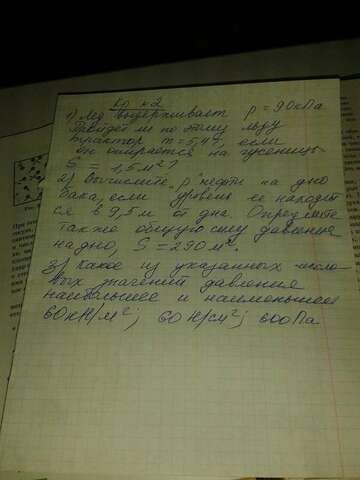 КР №2
1) Лёд выдерживает p = 90кПа
Пройдёт ли по этому льду
трактор m = 5,4т, если
он опирается на гусеницы
S = 1,5 м²?
2) Вычислите "p" нефти на дно
бака, если уровень её находит
ся в 9,5м от дна. Определите
также общую силу давления
на дно, S = 290 м².
3) Какое из указанных число
вых значений давления
наибольшее и наименьшее
60кН/м²; 60 Н/см²; 600Па